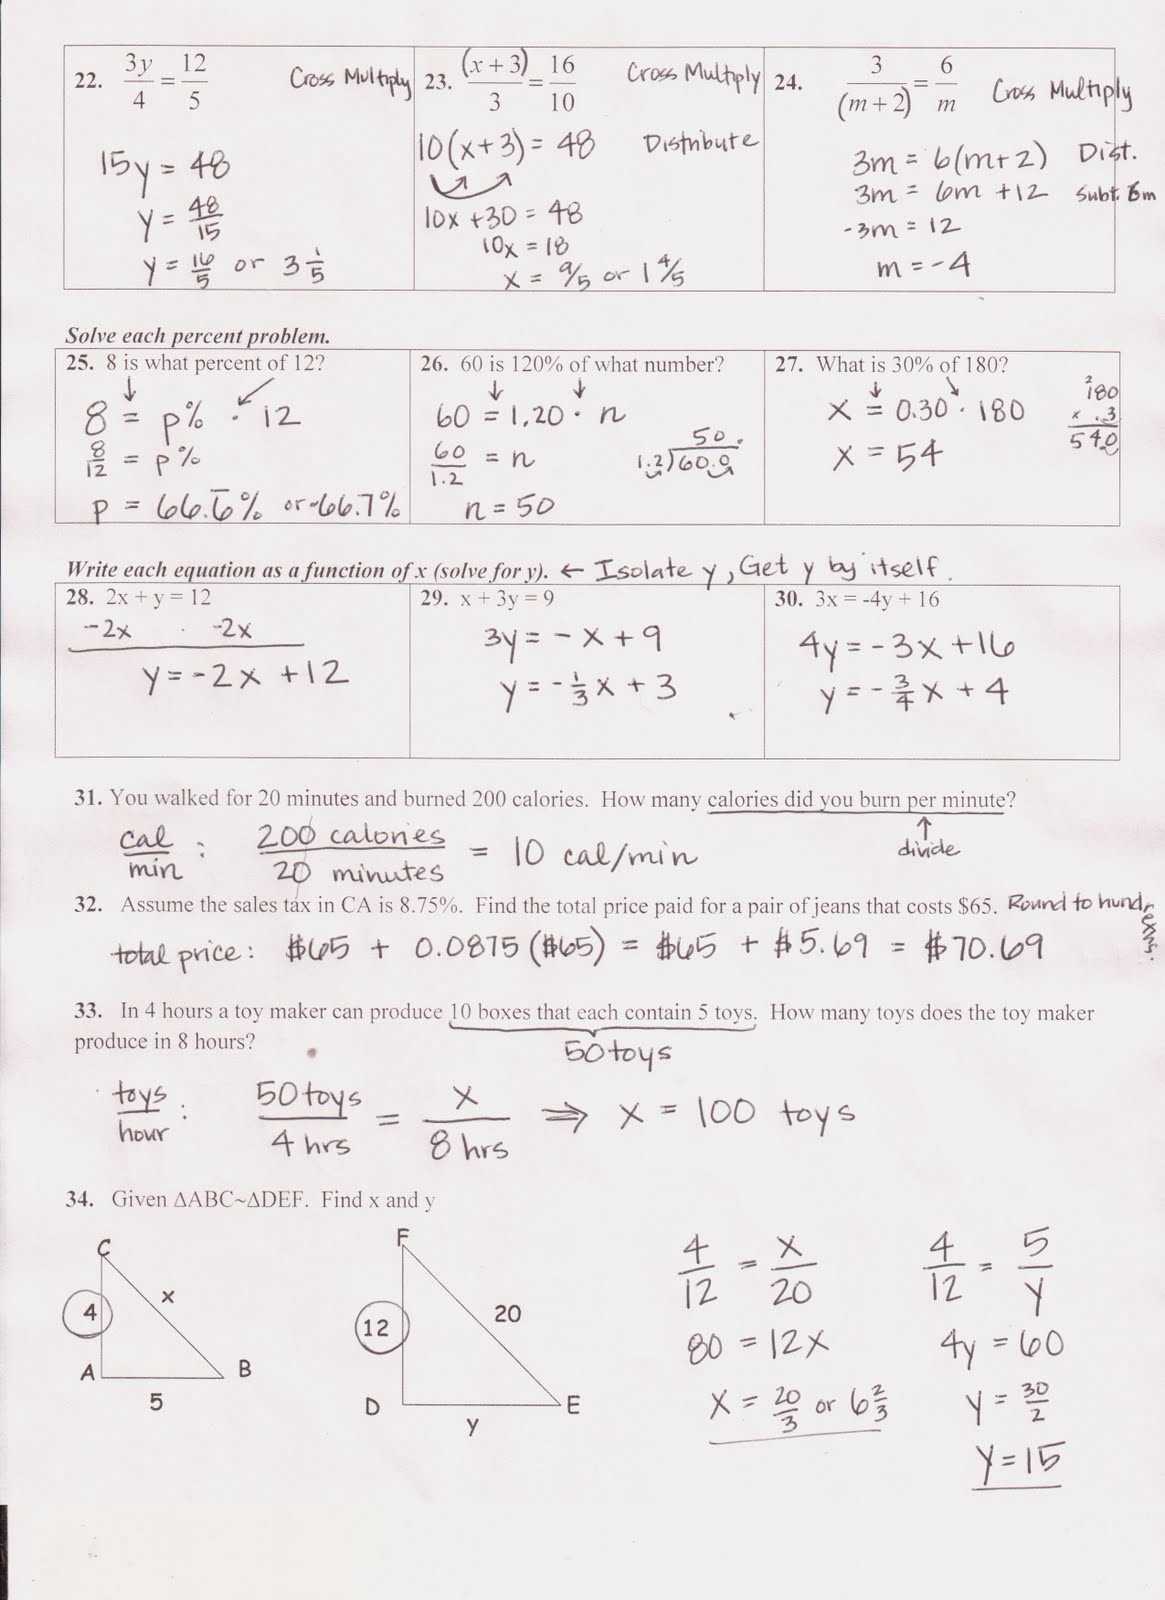 22. 3y/4 = 12/5 Cross Multiply
15y = 48
y = 48/15
y = 16/5 or 3 1/5
23. (x + 3)/3 = 16/10 Cross Multiply
10(x+3) = 48 Distribute
10x +30 = 48
10x = 18
x = 9/5 or 1 4/5
24. 3/(m + 2) = 6/m Cross Multiply
3m = 6(m+2) Dist.
3m = 6m +12 Subt. 6m
-3m = 12
m = -4
Solve each percent problem.
25. 8 is what percent of 12?
8 = p% · 12
8/12 = p%
p = 66.6̅% or ~66.7%
26. 60 is 120% of what number?
60 = 1.20 · n
60/1.2 = n
50.
1.2)60.0
n = 50
27. What is 30% of 180?
x = 0.30 · 180
x = 54
2
180
x .3
540
Write each equation as a function of x (solve for y). ← Isolate y, Get y by itself.
28. 2x + y = 12
-2x -2x
y = -2x +12
29. x + 3y = 9
3y = -x + 9
y = -1/3 x + 3
30. 3x = -4y + 16
4y = -3x +16
y = -3/4 x + 4
31. You walked for 20 minutes and burned 200 calories. How many calories did you burn per minute?
↑
divide
cal/min : 200 calories/20 minutes = 10 cal/min
32. Assume the sales tax in CA is 8.75%. Find the total price paid for a pair of jeans that costs $65. Round to hundreths.
total price: $65 + 0.0875($65) = $65 + $5.69 = $70.69
33. In 4 hours a toy maker can produce 10 boxes that each contain 5 toys. How many toys does the toy maker
produce in 8 hours?
50 toys
toys/hour : 50 toys/4 hrs = x/8 hrs ⇒ x = 100 toys
34. Given ΔABC~ΔDEF. Find x and y
C
4
x
A
B
5
F
12
20
D
E
y
4/12 = x/20
80 = 12x
x = 20/3 or 6 2/3
4/12 = 5/y
4y = 60
y = 30/2
y = 15